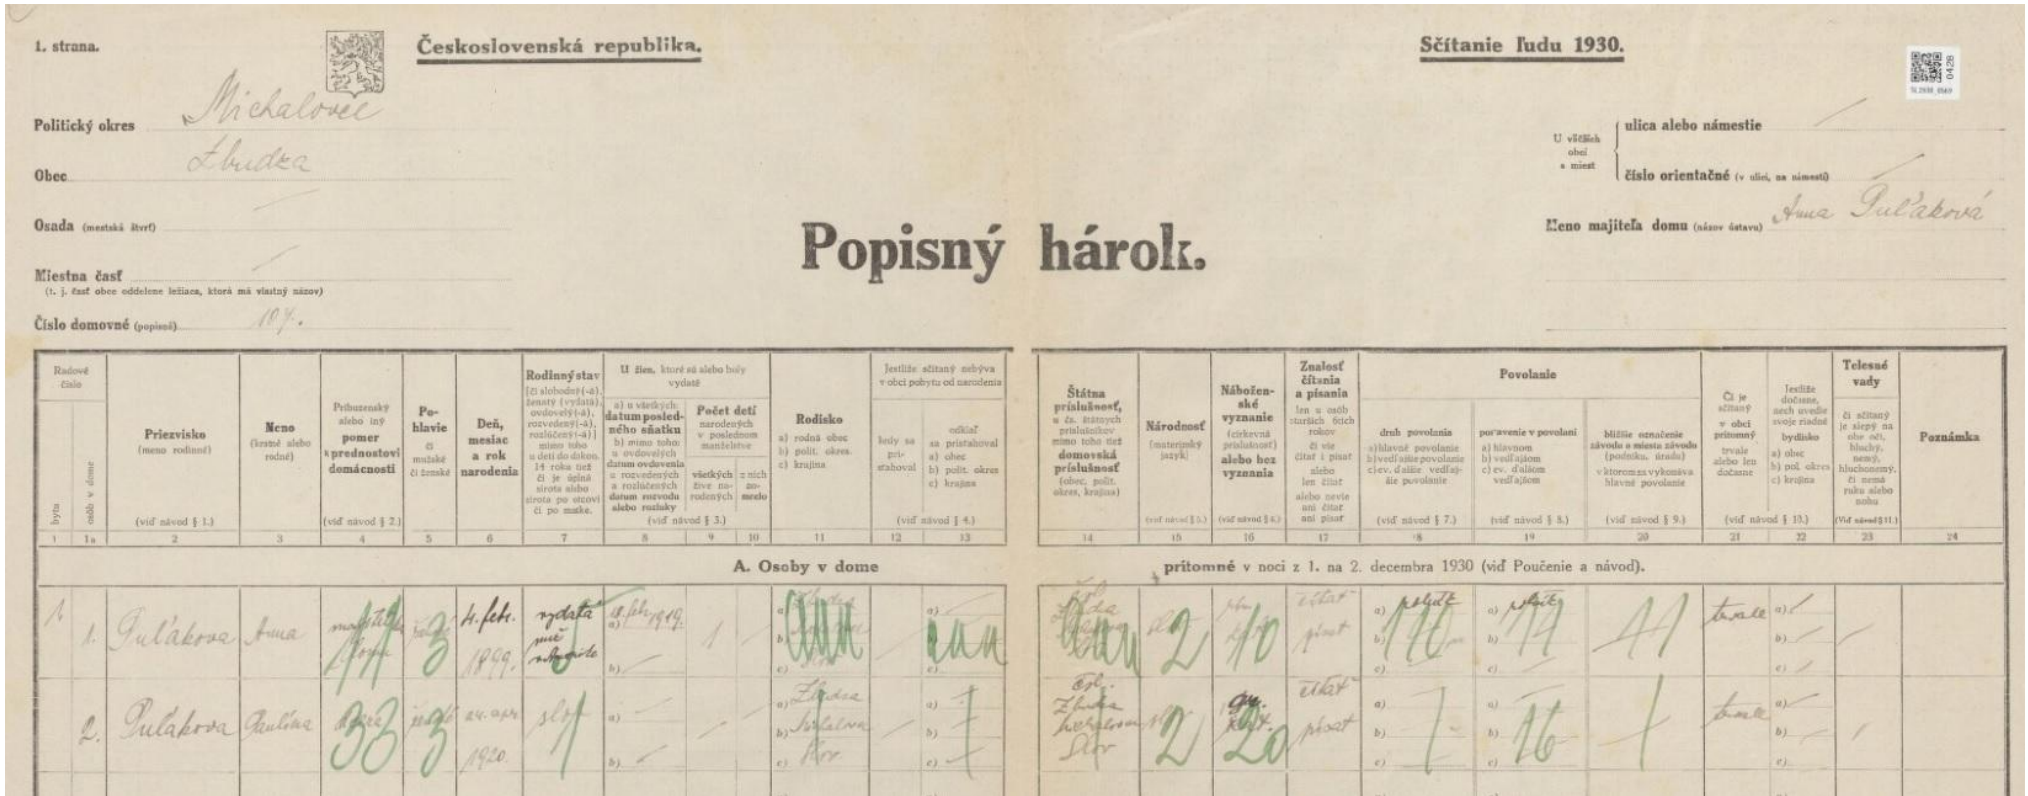 1. strana.
Československá republika.
Sčítanie ľudu 1930.
0428
Politický okres Michalovce
Obec Zbudza
Osada (mestská štvrť)
Miestna časť
(t. j. časť obce oddelene ležiaca, ktorá má vlastný názov)
Číslo domovné (popisné) 107.
U väčších obcí a miest
ulica alebo námestie
číslo orientačné (v ulici, na námestí)
Meno majiteľa domu (názov ústavu) Anna Puľaková
Popisný hárok.
Radové číslo
bytu
osôb v dome
Priezvisko
(meno rodinné)
(viď návod § 1.)
Meno
(krstné alebo
rodné)
Príbuzenský
alebo iný
pomer
k prednostovi
domácnosti
(viď návod § 2.)
Pohlavie
či
mužské
či ženské
Deň,
mesiac
a rok
narodenia
Rodinný stav
[či slobodný(-á),
ženatý (vydatá),
ovdovelý(-á),
rozvedený(-á),
rozlúčený(-á)]
mimo toho
u detí do dokon.
14 roku tiež
či je úplná
sirota alebo
sirota po otcovi
či po matke.
U žien, ktoré sú alebo boly
vydaté
a) u všetkých:
datum posledného sňatku
b) mimo toho:
u ovdovelých
datum ovdovenia
u rozvedených
a rozlúčených
datum rozvodu
alebo rozluky
Počet detí
narodených
v poslednom
manželstve
všetkých
žive narodených
z nich
zomrelo
(viď návod § 3.)
Rodisko
a) rodná obec
b) polit. okres
c) krajina
Jestliže sčítaný nebýva
v obci pobytu od narodenia
kedy sa
prisťahoval
odkiaľ
sa prisťahoval
a) obec
b) polit. okres
c) krajina
(viď návod § 4.)
Štátna
príslušnosť,
u čs. štátnych
príslušníkov
mimo toho tiež
domovská
príslušnosť
(obec, polit.
okres, krajina)
Národnosť
(materinský
jazyk)
(viď návod § 5.)
Náboženské
vyznanie
(cirkevná
príslušnosť)
alebo bez
vyznania
(viď návod § 6.)
Znalosť
čítania
a písania
len u osôb
starších 6tich
rokov
či vie
čítať i písať
alebo
len čítať
alebo nevie
ani čítať
ani písať
Povolanie
druh povolania
a) hlavné povolanie
b) vedľajšie povolanie
c) ev. ďalšie vedľajšie povolanie
(viď návod § 7.)
postavenie v povolaní
a) hlavnom
b) vedľajšom
c) ev. ďalšom
vedľajšom
(viď návod § 8.)
bližšie označenie
závodu a miesta závodu
(podniku, úradu)
v ktorom sa vykonáva
hlavné povolanie
(viď návod § 9.)
Či je
sčítaný
v obci
prítomný
trvale
alebo len
dočasne
Jestliže
dočasne,
nech uvedie
svoje riadne
bydlisko
a) obec
b) pol. okres
c) krajina
(viď návod § 10.)
Telesné
vady
či sčítaný
je slepý na
obe oči,
hluchý,
nemý,
hluchonemý,
či nemá
ruku alebo
nohu
(Viď návod § 11.)
Poznámka
1 1a 2 3 4 5 6 7 8 9 10 11 12 13 14 15 16 17 18 19 20 21 22 23 24
A. Osoby v dome prítomné v noci z 1. na 2. decembra 1930 (viď Poučenie a návod).
1. Puľakova Anna 3 4. febr. 1899. vydatá 1919. 1 2 10 čítať písať trvale
2. Puľakova Paulína 33 3 1920. Zbudza Slov. 2 20 čítať písať 16 trvale